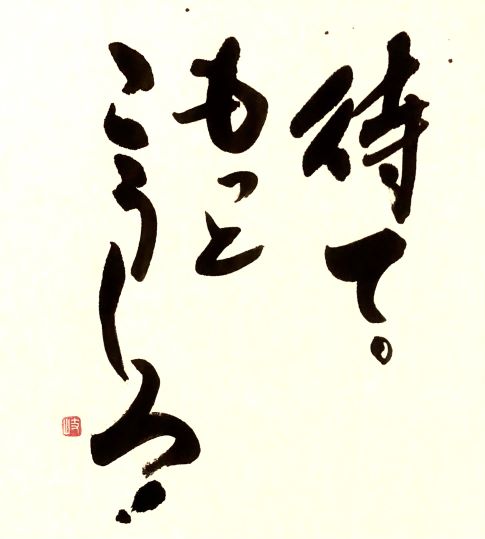 待て。
もっと
こうしろ!
岐